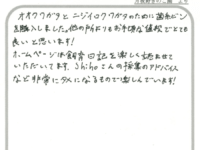 オオクワガタとニジイロクワガタのために菌糸ビン
を購入しました。他の所よりもお手頃な値段でとても
良いと思います!
ホームページは飼育日記を楽しく読ませて
いただいてます。Shihoさんの採集のアドバイス
など非常にタメになるもので楽しんでいます!